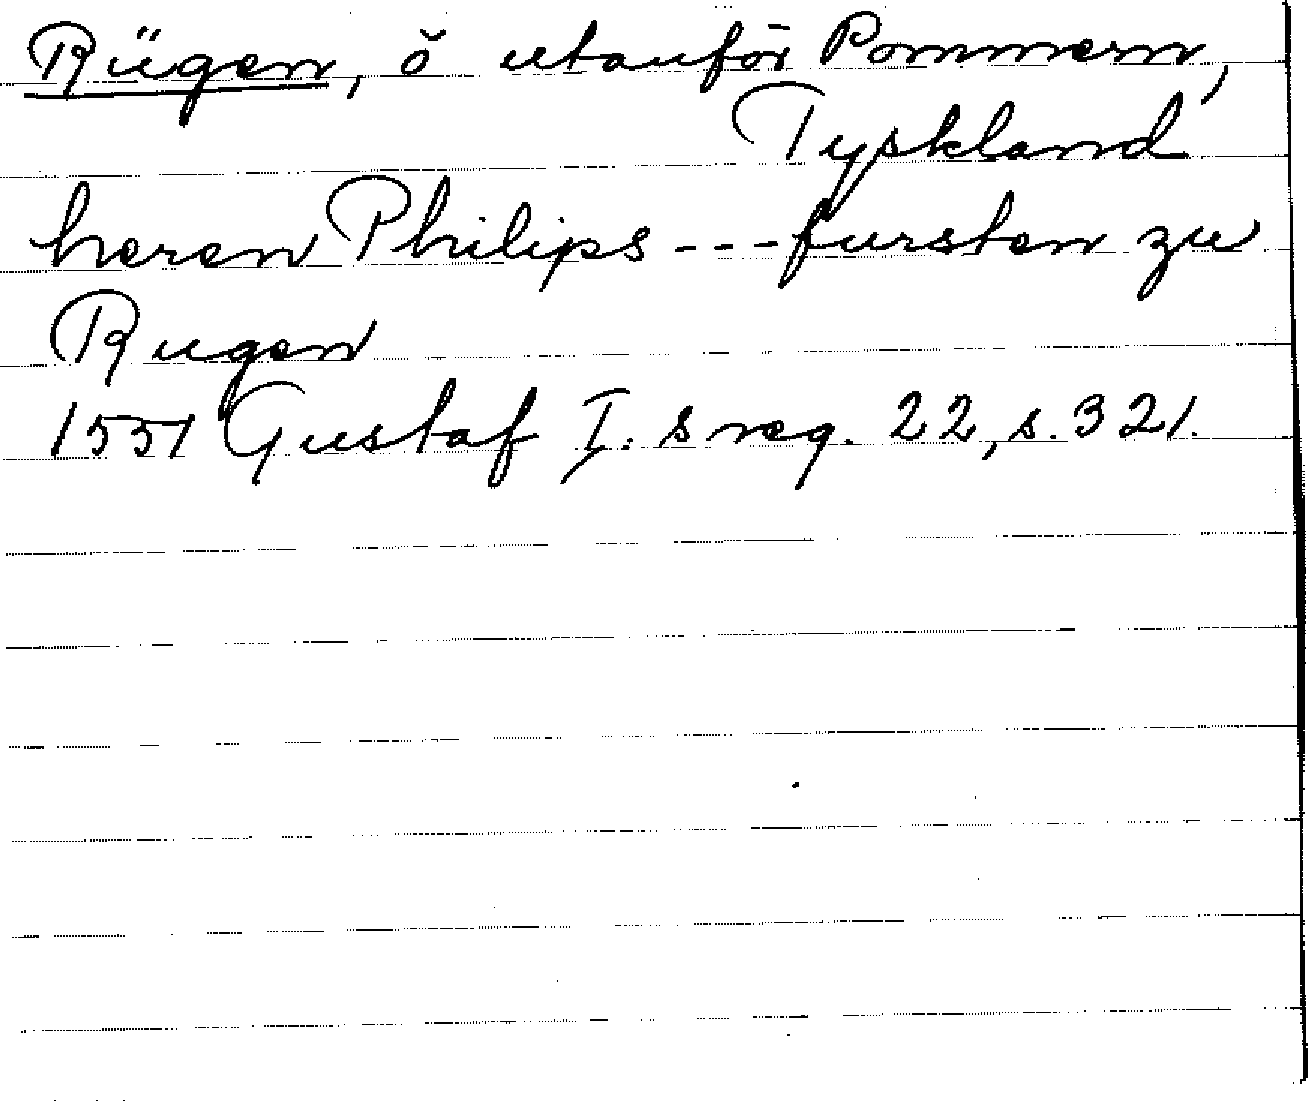 Rügen, ö utanför Pommern,
Tyskland
heren Philips --- fursten zu
Rugen
1551 Gustaf I. s reg. 22, s. 321.